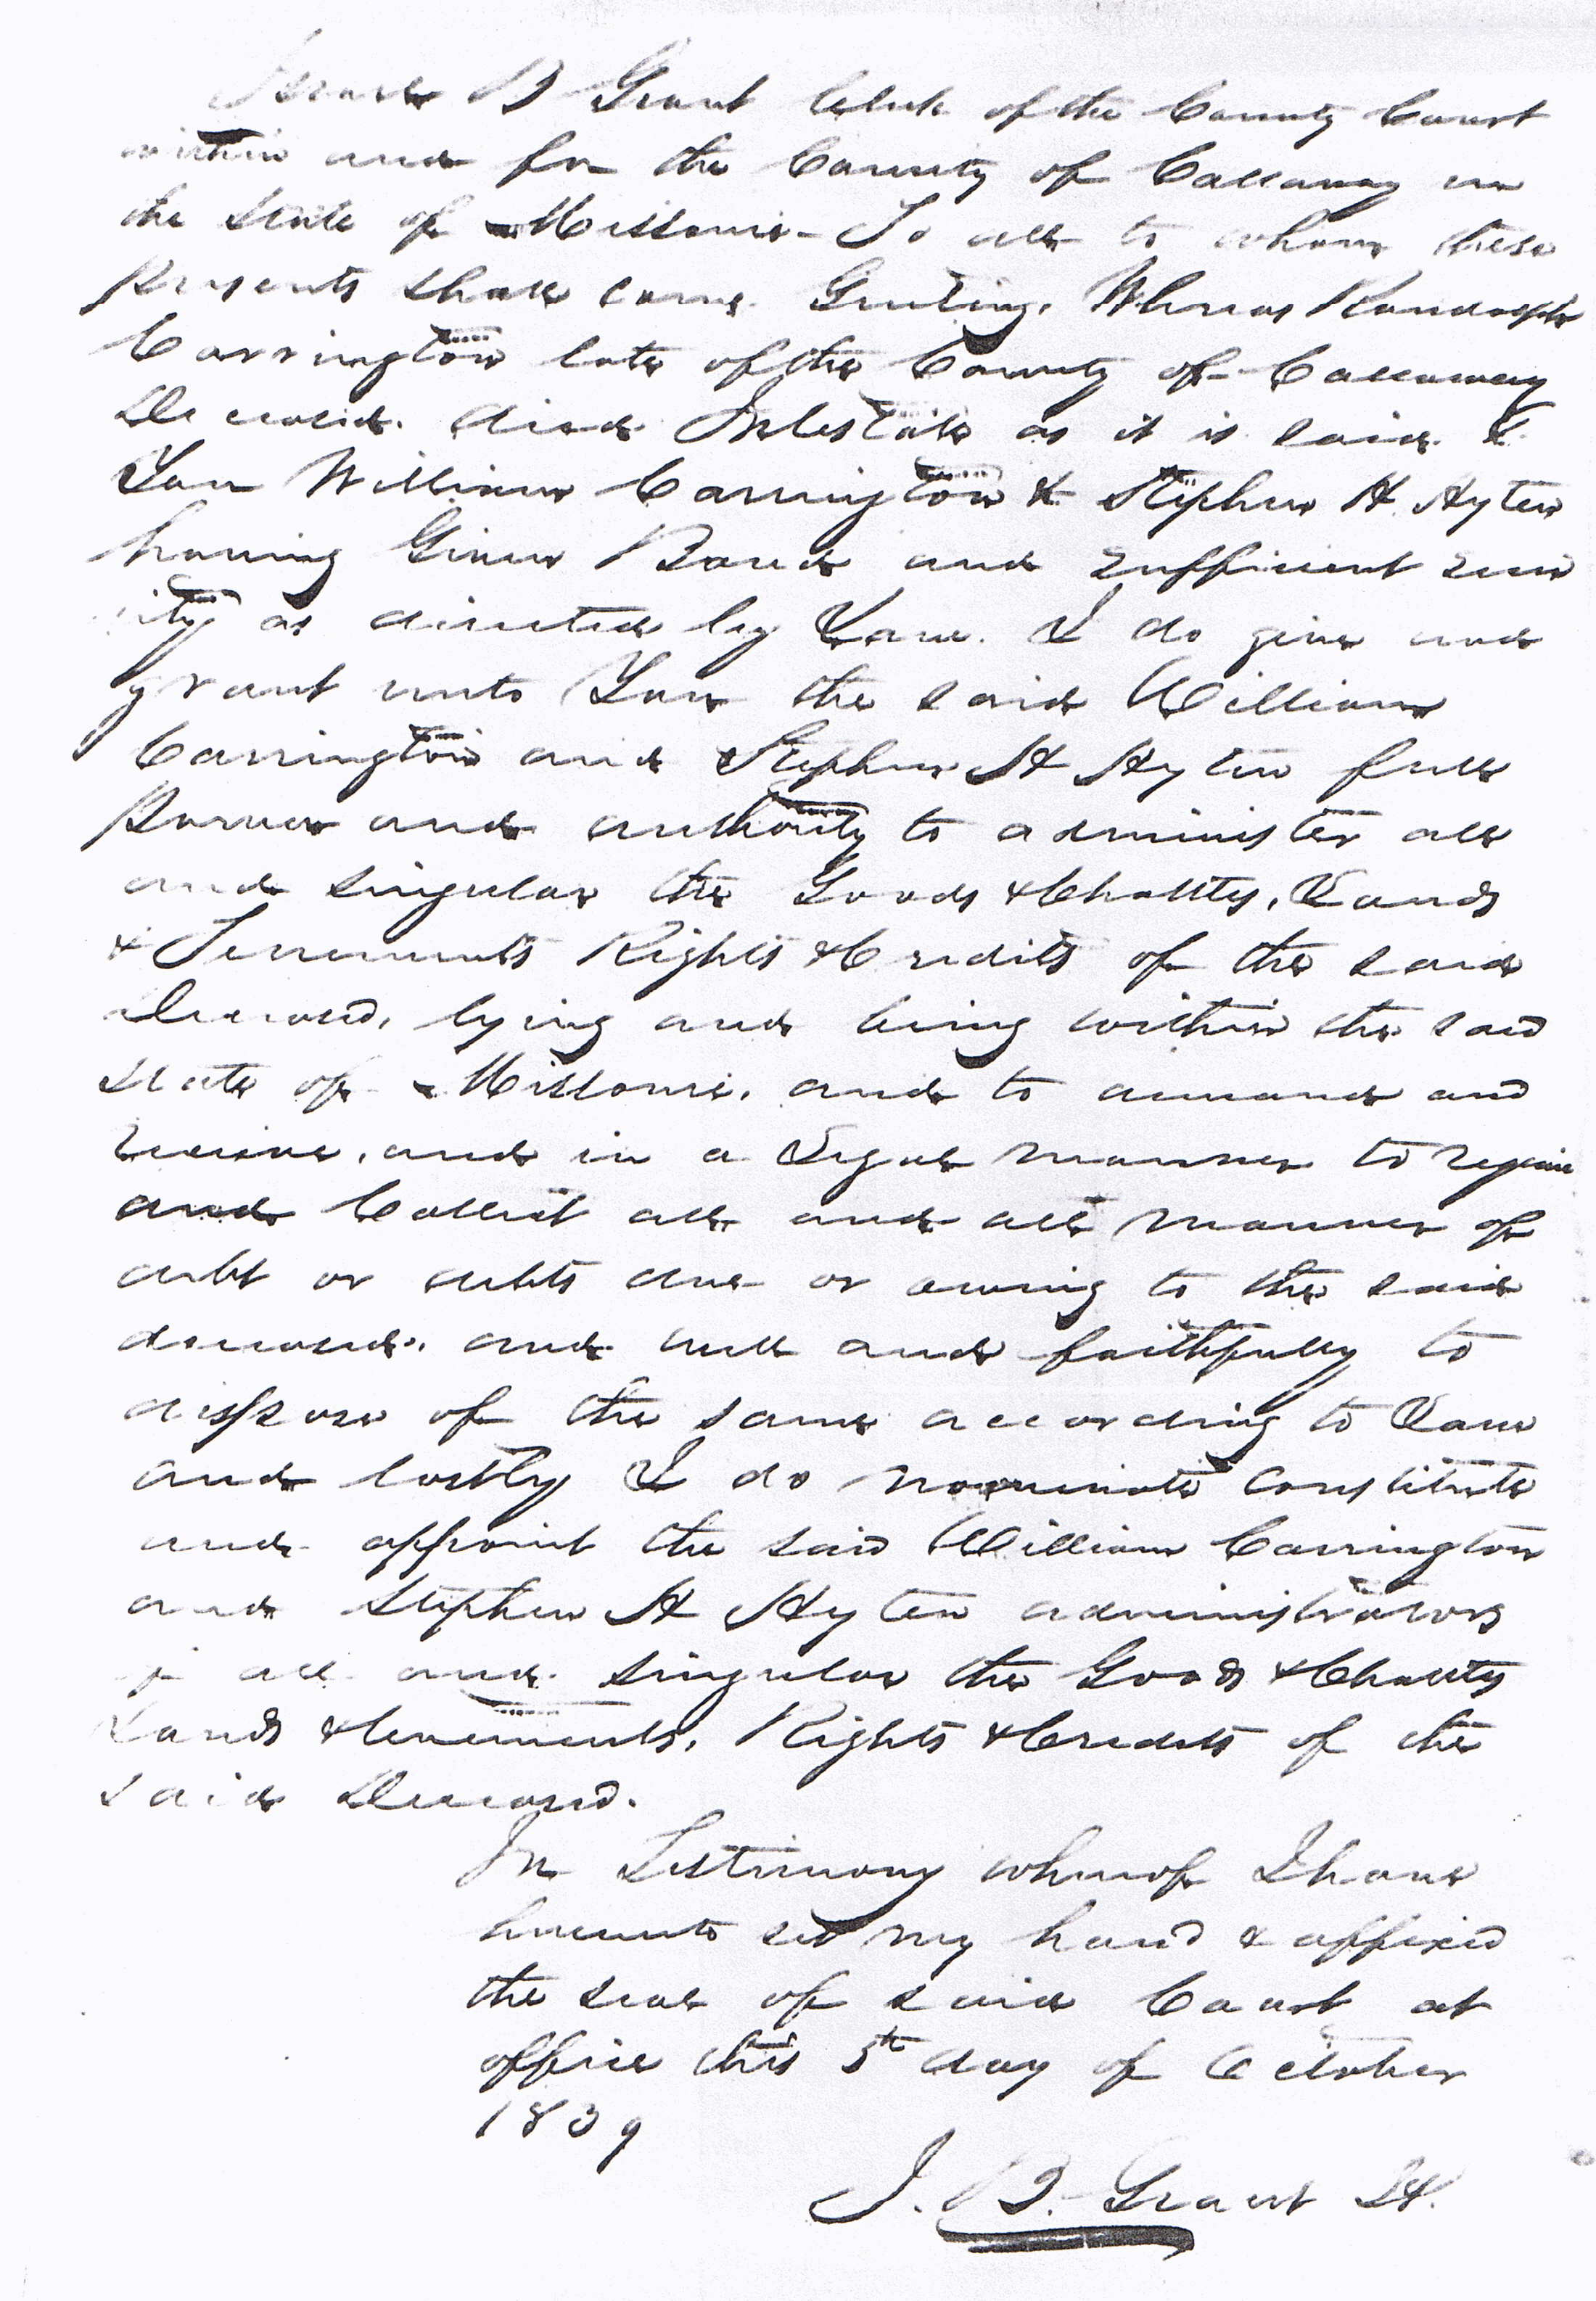 Israel B Grant Clerk of the County Court
within and for the County of Callaway in
the State of Missouri - To all to whom these
Presents shall come Greeting. Whereas Randolph
Carrington late of the County of Callaway
Deceased. died Intestate as it is said &
You William Carrington & Stephen H Hyten
having Given Bond and sufficient secu
rity as directed by Law. I do give and
grant unto You the said William
Carrington and Stephen H Hyten full
Power and authority to administer all
and singular the Goods & Chattles, Lands
& Tenements Rights & Credits of the said
Deceased, lying and being within the said
State of Missouri, and to demand and
receive, and in a Legal manner to require
and Collect all and all manner of
debt or debts due or owing to the said
deceased. and well and faithfully to
dispose of the same according to Law
and lastly I do nominate constitute
and appoint the said William Carrington
and Stephen H Hyten administrators
of all and singular the Goods & Chattles
Lands & tenements, Rights & Credits of the
said Deceased.
In Testimony whereof I have
hereunto set my hand & affixed
the seal of said Court at
office this 5th day of October
1839
I. B. Grant